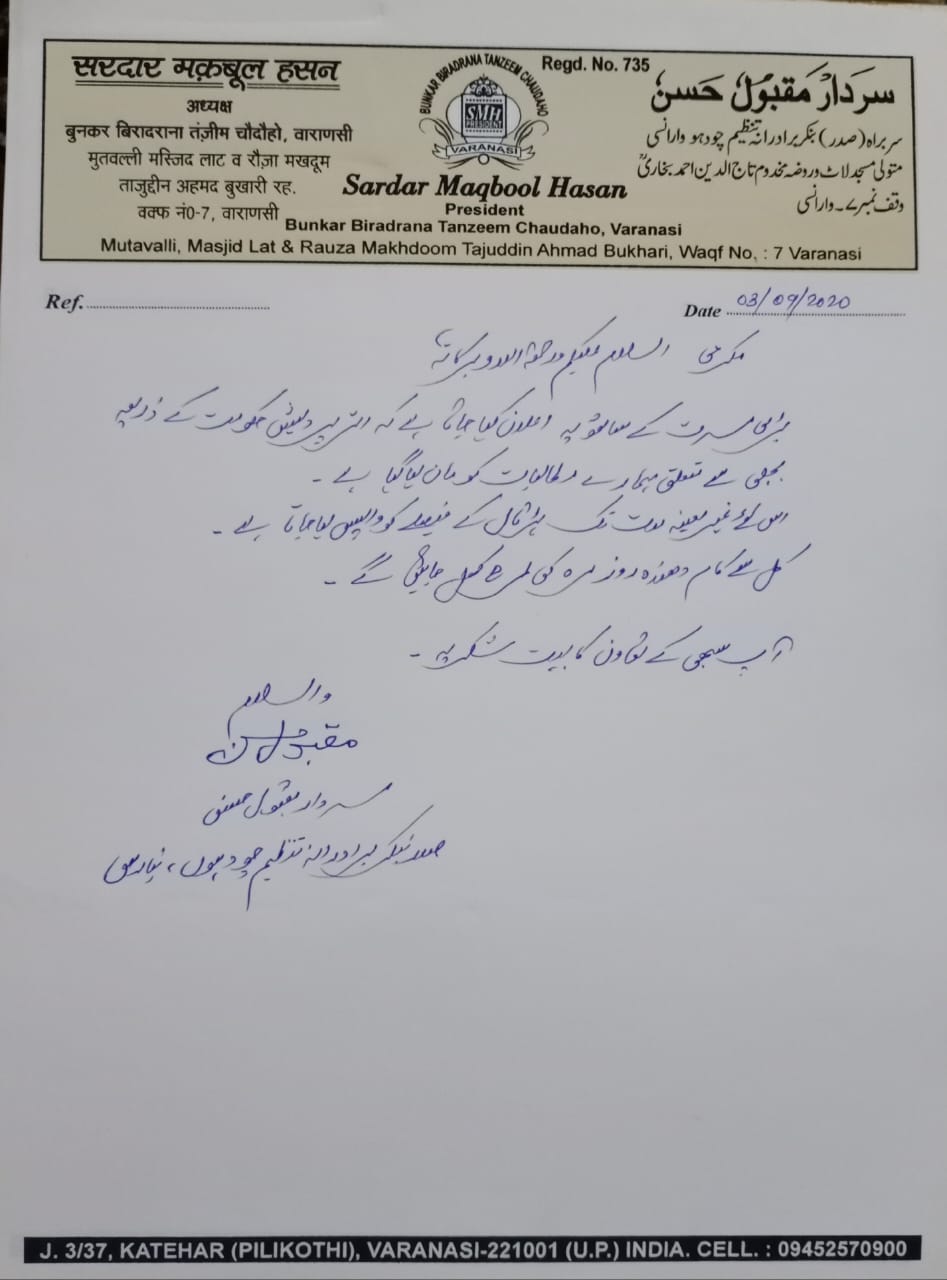 सरदार मक़बूल हसन
अध्यक्ष
बुनकर बिरादराना तंज़ीम चौदौहो, वाराणसी
मुतवल्ली मस्जिद लाट व रौज़ा मखदूम
ताजुद्दीन अहमद बुखारी रह.
वक्फ नं0-7, वाराणसी
BUNKAR BIRADRANA TANZEEM CHAUDAHO
SMH
PRESIDENT
VARANASI
Regd. No. 735
سردار مقبول حسن
سربراہ (صدر) بنکر برادرانہ تنظیم چودہو وارانسی
متولی مسجد لاٹ و روضہ مخدوم تاج الدین احمد بخاریؒ
وقف نمبر ۷۔ وارانسی
Sardar Maqbool Hasan
President
Bunkar Biradrana Tanzeem Chaudaho, Varanasi
Mutavalli, Masjid Lat & Rauza Makhdoom Tajuddin Ahmad Bukhari, Waqf No, : 7 Varanasi
Ref.
Date 03/09/2020
مکرمی السلام علیکم ورحمۃ اللہ وبرکاتہ
بڑی مسرت کے ساتھ یہ اعلان کیا جاتا ہے کہ اتر پردیش حکومت کے ذریعہ
بجلی سے متعلق ہمارے مطالبات کو مان لیا گیا ہے ۔
اس لئے غیر معینہ مدت تک ہڑتال کے فیصلے کو واپس لیا جاتا ہے ۔
کل سے کام دھندہ روز مرہ کی طرح کھل جائیں گے ۔
آپ سبھی کے تعاون کا بہت شکریہ ۔
والسلام
مقبول حسن
سردار مقبول حسن
صدر بنکر برادرانہ تنظیم چودہوں، بنارس
J. 3/37, KATEHAR (PILIKOTHI), VARANASI-221001 (U.P.) INDIA. CELL. : 09452570900